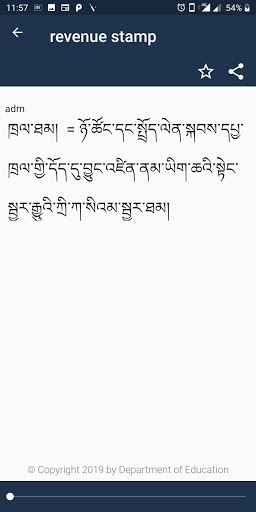 11:57
54%
revenue stamp
adm
ཁྲལ་ཐམ། = ཉོ་ཚོང་དང་སྤྲོད་ལེན་སྐབས་དཔྱ་
ཁྲལ་གྱི་དོད་དུ་བྱུང་འཛིན་ནམ་ཡིག་ཆའི་སྟེང་
སྦྱར་རྒྱུའི་ཀྲི་ཀ་སིའམ་སྦྱར་ཐམ།
© Copyright 2019 by Department of Education